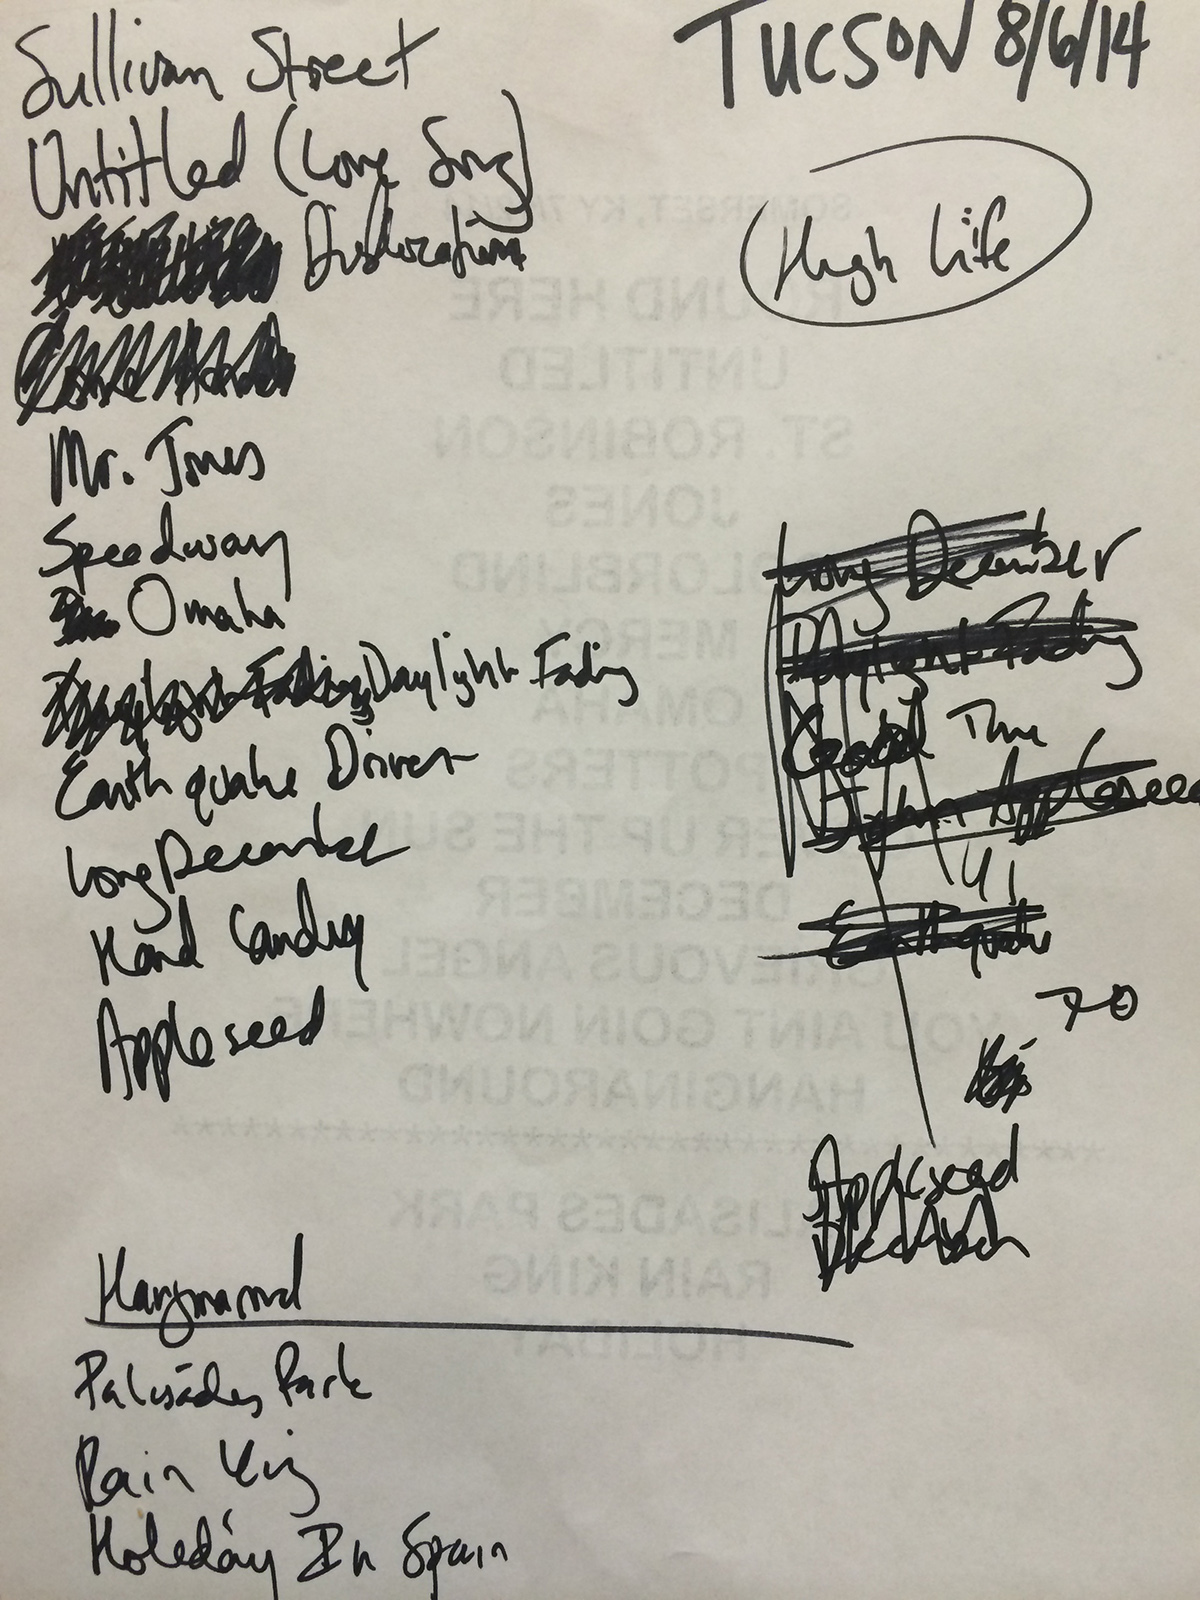 TUCSON 8/6/14
Sullivan Street
Untitled (Love Song)
Dislocation
High Life
Mr. Jones
Speedway
Omaha
Daylight Fading
Earthquake Driver
Long December
Hard Candy
Appleseed
Hanginaround
Palisades Park
Rain King
Holiday In Spain
Long December
Daylight Fading
Good Time
John Appleseed
Earthquake
70
Appleseed
SOMERSET, KY
ROUND HERE
UNTITLED
ST. ROBINSON
JONES
COLORBLIND
MERCY
OMAHA
POTTERS
UP THE SUN
DECEMBER
GRIEVOUS ANGEL
YOU AINT GOIN NOWHERE
HANGINAROUND
PALISADES PARK
RAIN KING
HOLIDAY